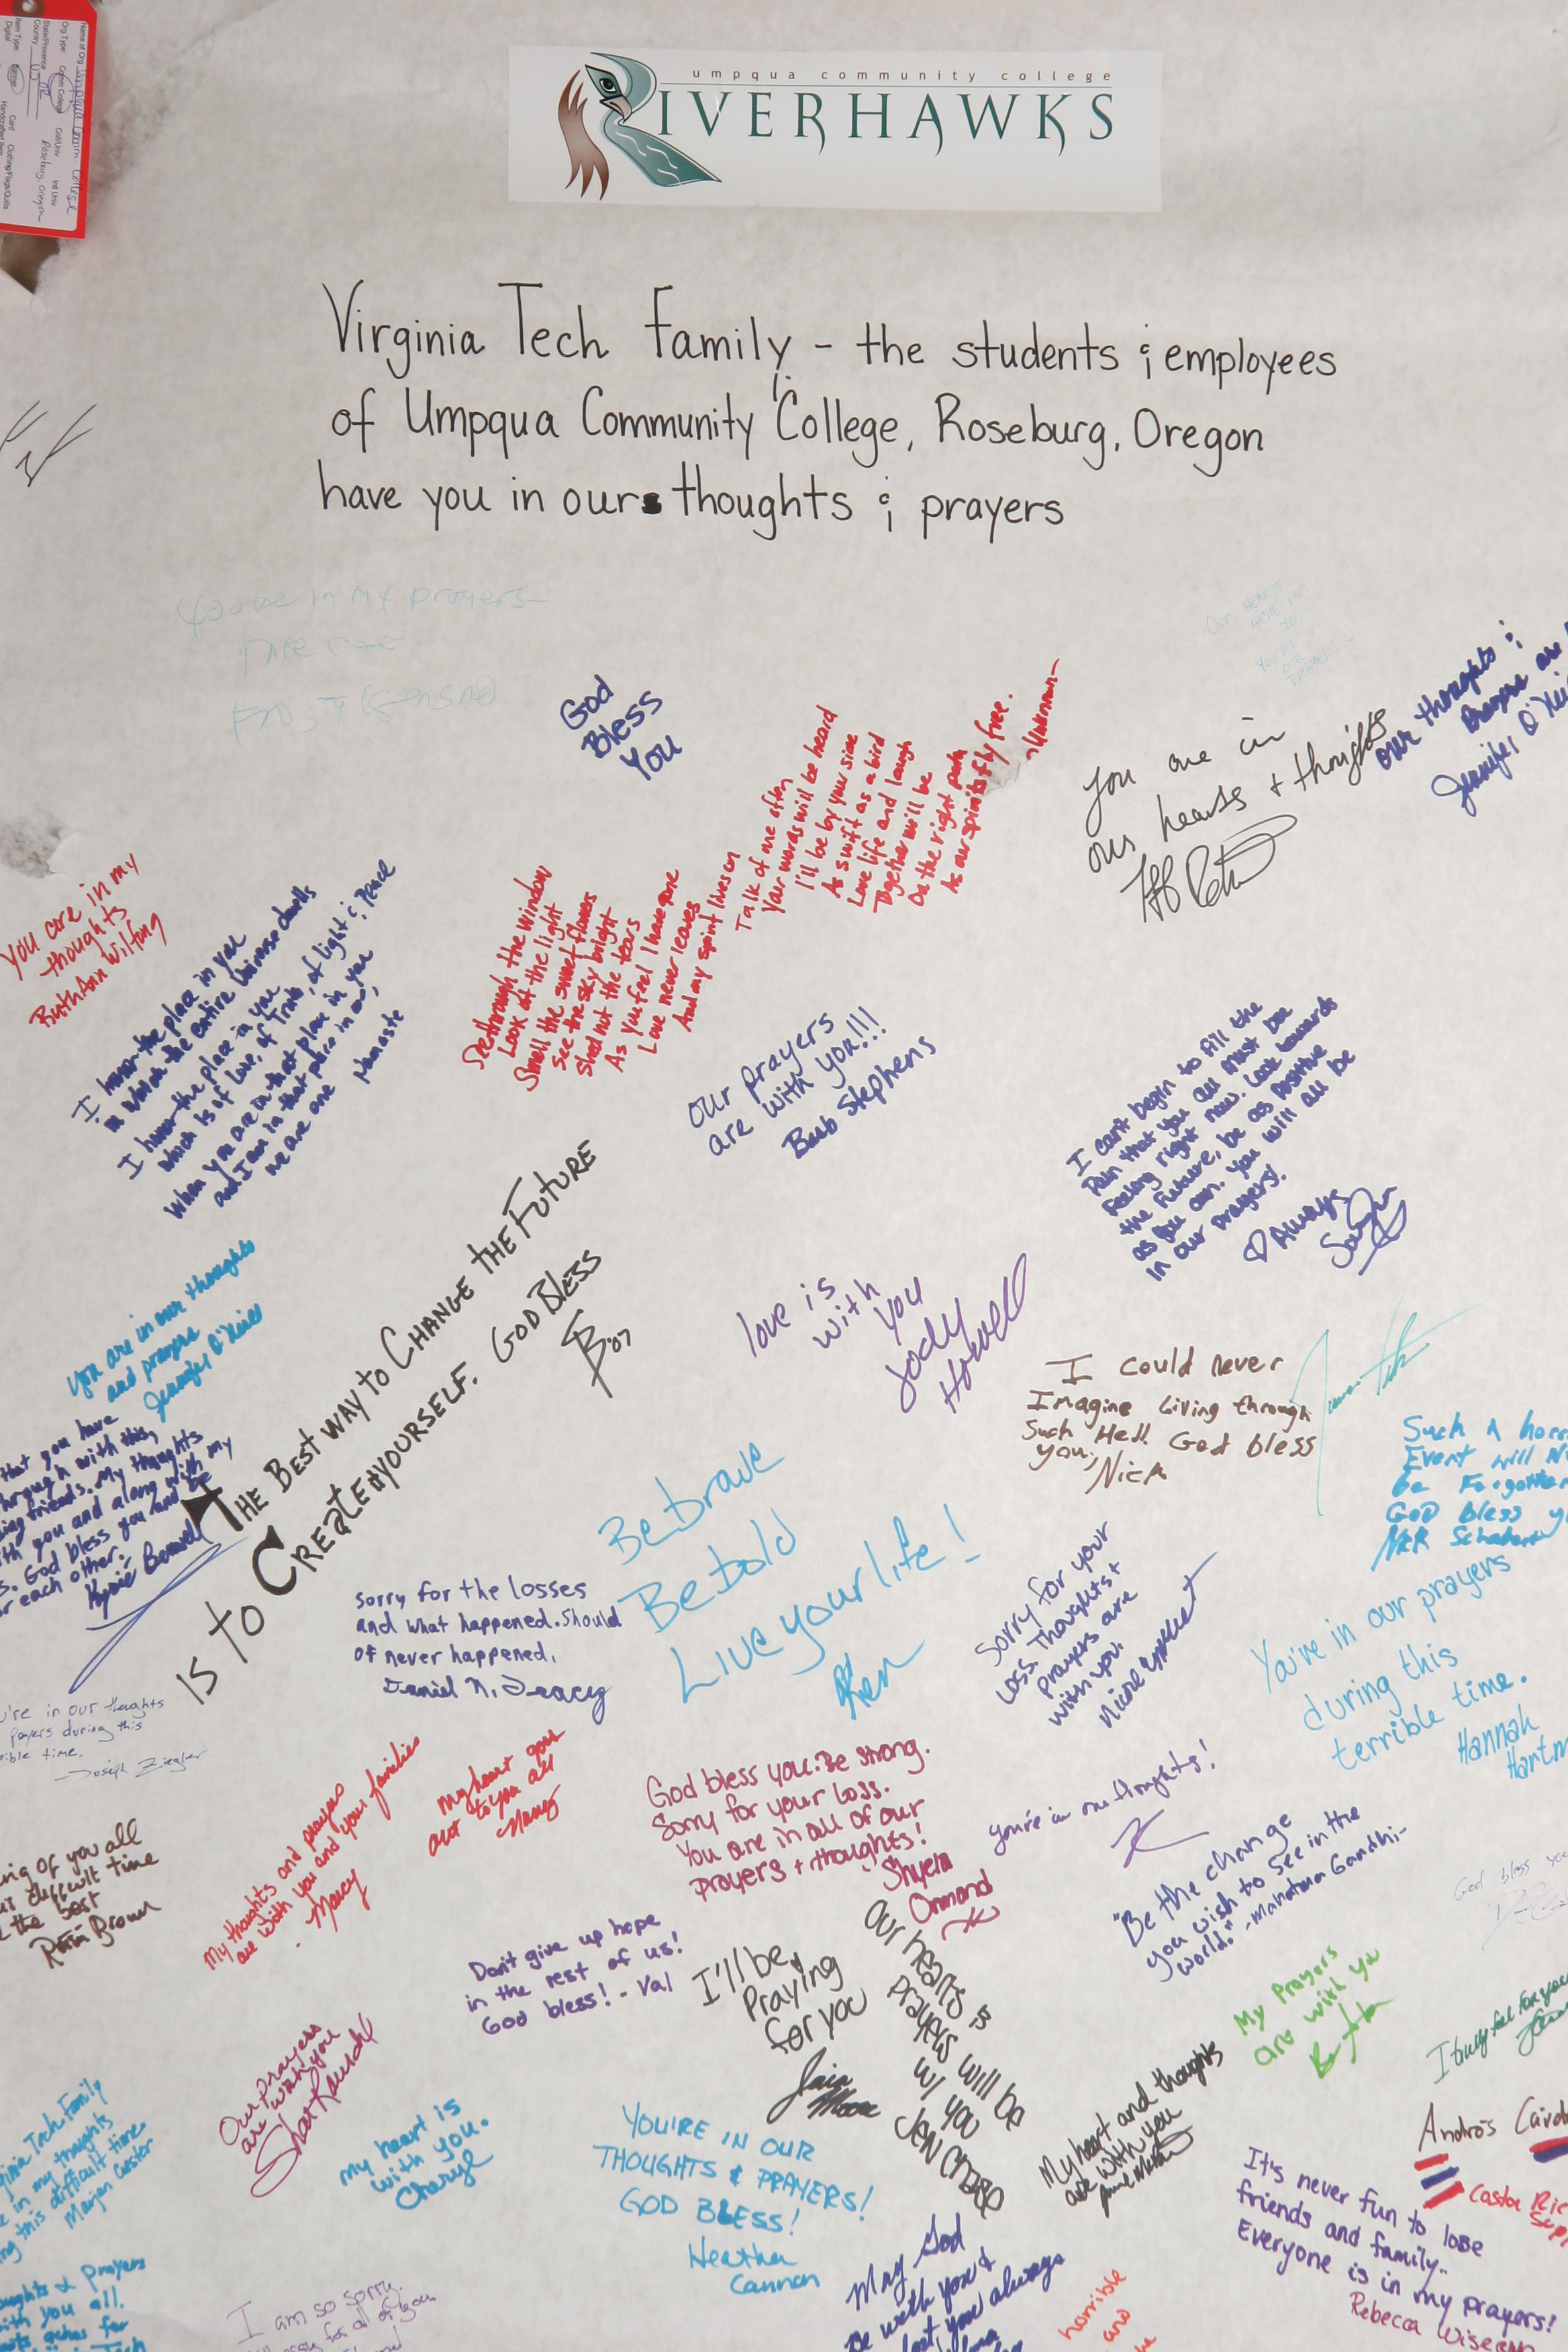 umpqua community college
RIVERHAWKS
Virginia Tech Family - the students & employees
of Umpqua Community College, Roseburg, Oregon
have you in our thoughts & prayers
God
Bless
You
our thoughts &
Prayers are
You are in
our hearts + thoughts
See through the window
Look at the light
Smell the sweet flowers
See the sky bright
Shed not the tears
As you feel I have gone
Love never leaves
And my spirit lives on
Talk of me often
Your words will be heard
I'll be by your side
As swift as a bird
Love life and laugh
Together will be
On the right path
As our spirits fly free.
~Unknown~
You are in my
thoughts
RuthAnn Wilfong
I honor the place in you
in which the entire Universe dwells
I honor the place in you
which is of Love, of Truth, of light & peace
When you are in that place in you
and I am in that place in me,
we are one
Namaste
our prayers
are with you!!!
Barb Stephens
I can't begin to fill the
Pain that you all must be
Feeling right now. Look towards
the future, be as positive
as you can. You will all be
in our prayers!
Always
You are in our thoughts
and prayers
Jennifer O'Neil
THE BEST WAY TO CHANGE THE FUTURE
IS TO CREATE IT YOURSELF. GOD BLESS
'07
love is
with
you
Jody
Howell
I could never
Imagine Living through
Such Hell God bless
you,
Nick
Such A
Event will
be Forgotten
GOD bless
that you have
through with this,
friends. My thoughts
with you and along with my
God bless you and be
for each other.
Be brave
Be bold
Live your life!
Ken
Sorry for the losses
and what happened. Should
of never happened.
Daniel N. Tracy
Sorry for your
Loss. Thoughts +
prayers are
with you.
Nicole
You're in our prayers
during this
terrible time.
Hannah
in our thoughts
prayers during this
time.
- Joseph Ziegler
My thoughts and prayers
are with you and your families
- Marcy
My heart goes
out to you all
Nancy
God bless you. Be strong.
Sorry for your loss.
You are in all of our
prayers + thoughts!
Shyela
Ormond
you're in our thoughts!
"Be the change
you wish to see in the
world." -Mahatma Gandhi-
of you all
difficult time
the best
Brown
God bless you
Don't give up hope
in the rest of us!
God bless! - Val
I'll be
Praying
for you
Our hearts &
prayers will be
w/ you
Jen Chase
My Prayers
are with you
I truly feel for you
Our prayers
are with you
my heart is
with you.
Cheryl
My heart and thoughts
are with you
Tech Family
in my thoughts
this difficult time
YOU'RE IN OUR
THOUGHTS & PRAYERS!
GOD BLESS!
Heather
Cannon
Andrós
Castor
It's never fun to lose
friends and family..
Everyone is in my prayers!
Rebecca
May God
Be with you &
you always
thoughts & prayers
with you all.
for
I am so sorry.
for all of you
horrible
and